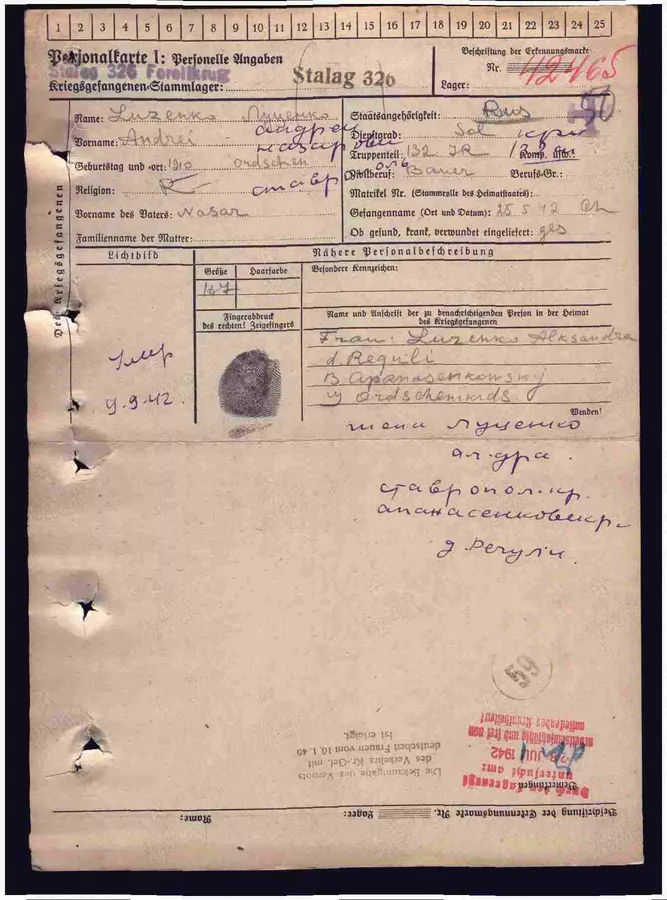 1 2 3 4 5 6 7 8 9 10 11 12 13 14 15 16 17 18 19 20 21 22 23 24 25
Personalkarte I: Personelle Angaben
Stalag 326 Forellkrug
Kriegsgefangenen-Stammlager:
Stalag 326
Beschriftung der Erkennungsmarke
Nr. 42465
Lager:
Des Kriegsgefangenen
Name: Luzenko Луценко
Vorname: Andrei андрей
назарови
Geburtstag und -ort: 1910 ordschen
Religion: R ставрополь
Vorname des Vaters: Nasar
Familienname der Mutter:
Staatsangehörigkeit: Rus
Dienstgrad: Sol
Truppenteil: 132 JR Komp. usw.:
Zivilberuf: Bauer Berufs-Gr.:
Matrikel Nr. (Stammrolle des Heimatstaates):
Gefangenname (Ort und Datum): 25 5 42
Ob gesund, krank, verwundet eingeliefert: ges
Lichtbild
Nähere Personalbeschreibung
Größe
Haarfarbe
Besondere Kennzeichen:
167
Fingerabdruck
des rechten! Zeigefingers
Name und Anschrift der zu benachrichtigenden Person in der Heimat
des Kriegsgefangenen
Frau: Luzenko Aleksandra
d Reguli
R Apanasenkowsky
Ordschenikds
Wenden!
Умер
9.9.42.
жена Луценко
ал-дра.
ставропол. кр.
апанасенковск р-
д Регули.
59
Die Bekanntgabe des Verbots
des Verkehrs Kr.-Gef. mit
deutschen Frauen vom 10.1.40
ist erfolgt.
Bemerkungen
untersucht am:
28. JULI 1942
arbeitseinsatzfähig und frei von
ansteckender Krankheiten!
Beschriftung der Erkennungsmarke Nr. Lager: Name: